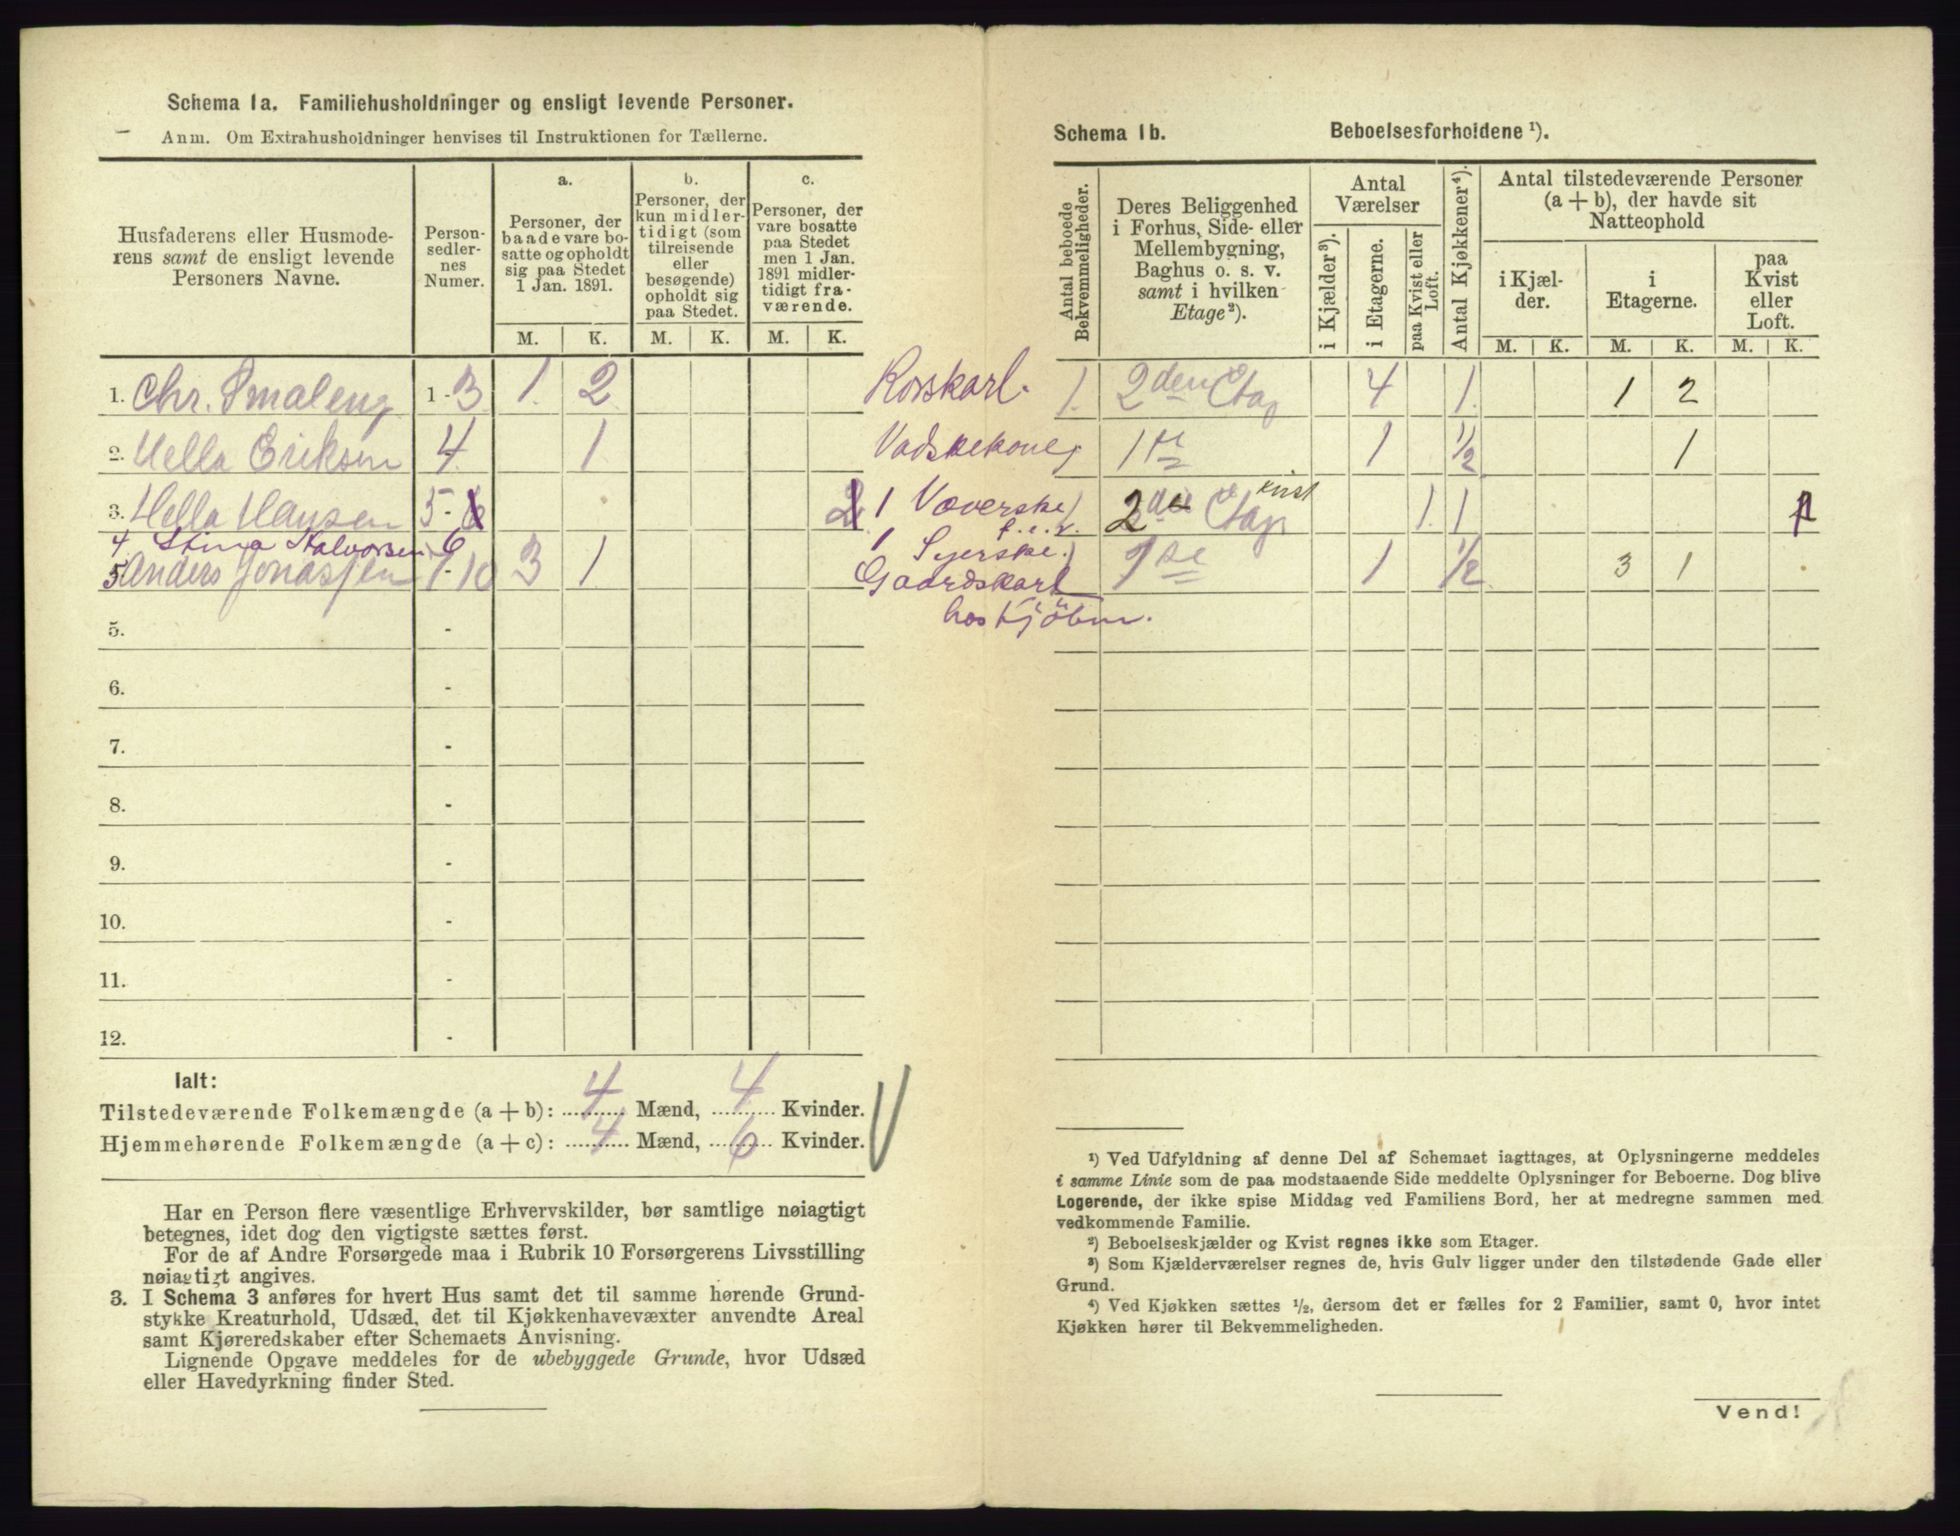 Schema 1a. Familiehusholdninger og ensligt levende Personer.
Anm. Om Extrahusholdninger henvises til Instruktionen for Tællerne.
Husfaderens eller Husmode-
rens samt de ensligt levende
Personers Navne.
Person-
sedler-
nes
Numer.
a.
Personer, der
baade vare bo-
satte og opholdt
sig paa Stedet
1 Jan. 1891.
b.
Personer, der
kun midler-
tidigt (som
tilreisende
eller
besøgende)
opholdt sig
paa Stedet.
c.
Personer, der
vare bosatte
paa Stedet
men 1 Jan.
1891 midler-
tidigt fra-
værende.
M. K. M. K. M. K.
1. Chr. Smaleng 1-3 1. 2
2. Hella Eriksen 4. 1
3. Hella Hansen 5-6 2 1
4 Stina Halvorsen 6 1
5 Anders Jonassen 7-10 3 1
5. -
6. -
7. -
8. -
9. -
10. -
11. -
12. -
Ialt:
Tilstedeværende Folkemængde (a + b): 4 Mænd, 4 Kvinder.
Hjemmehørende Folkemængde (a + c): 4 Mænd, 6 Kvinder.
Har en Person flere væsentlige Erhvervskilder, bør samtlige nøiagtigt
betegnes, idet dog den vigtigste sættes først.
For de af Andre Forsørgede maa i Rubrik 10 Forsørgerens Livsstilling
nøiagtigt angives.
3. I Schema 3 anføres for hvert Hus samt det til samme hørende Grund-
stykke Kreaturhold, Udsæd, det til Kjøkkenhavevæxter anvendte Areal
samt Kjøreredskaber efter Schemaets Anvisning.
Lignende Opgave meddeles for de ubebyggede Grunde, hvor Udsæd
eller Havedyrkning finder Sted.
Schema 1b. Beboelsesforholdene ¹).
Antal beboede
Bekvemmeligheder.
Deres Beliggenhed
i Forhus, Side- eller
Mellembygning,
Baghus o. s. v.
samt i hvilken
Etage²).
Antal
Værelser
i Kjælder³).
i Etagerne.
paa Kvist eller
Loft.
Antal Kjøkkener⁴).
Antal tilstedeværende Personer
(a + b), der havde sit
Natteophold
i Kjæl-
der.
i
Etagerne.
paa
Kvist
eller
Loft.
M. K. M. K. M. K.
1. 2den Etag 4 1. 1 2
Vadskekone 1 1/2 1
Væverske 2 Etag kvist 1. 1
f.e.v.
Syerske.
Gaardskarl 1 1/2 3 1
hos Kjöbm.
¹) Ved Udfyldning af denne Del af Schemaet iagttages, at Oplysningerne meddeles
i samme Linie som de paa modstaaende Side meddelte Oplysninger for Beboerne. Dog blive
Logerende, der ikke spise Middag ved Familiens Bord, her at medregne sammen med
vedkommende Familie.
²) Beboelseskjælder og Kvist regnes ikke som Etager.
³) Som Kjælderværelser regnes de, hvis Gulv ligger under den tilstødende Gade eller
Grund.
⁴) Ved Kjøkken sættes ½, dersom det er fælles for 2 Familier, samt 0, hvor intet
Kjøkken hører til Bekvemmeligheden.
Vend!